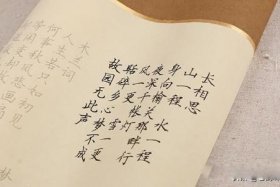 长相思
山一程 水一程
身向榆关那畔行
夜深千帐灯
风一更 雪一更
聒碎乡心梦不成
故园无此声
人生若只如初见
何事秋风悲画